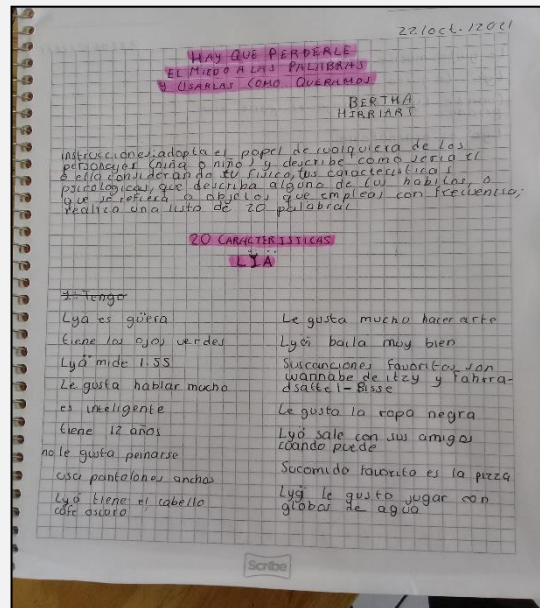 22/oct./2021
HAY QUE PERDERLE
EL MIEDO A LAS PALABRAS
Y USARLAS COMO QUERAMOS
BERTHA
HIRIART
instrucciones: adopta el papel de cualquiera de los
personajes (niña o niño) y describe como seria el
o ella considerando tu fisico, tus caracteristicas
psicologicas, que describa alguno de tus habitos, o
que se refiera a objetos que empleas con frecuencia;
realiza una lista de 20 palabras
20 CARACTERISTICAS
LYA
1= Tengo
Lya es güera
tiene los ojos verdes
Lya mide 1.55
Le gusta hablar mucho
es inteligente
tiene 12 años
no le gusta peinarse
usa pantalones anchos
Lya tiene el cabello
cafe oscuro
Le gusta mucho hacer arte
Lya baila muy bien
Sus canciones favoritas son
wannabe de itzy y
Le gusta la ropa negra
Lya sale con sus amigas
cuando puede
Su comida favorita es la pizza
Lya le gusta jugar con
globos de agua
Scribe